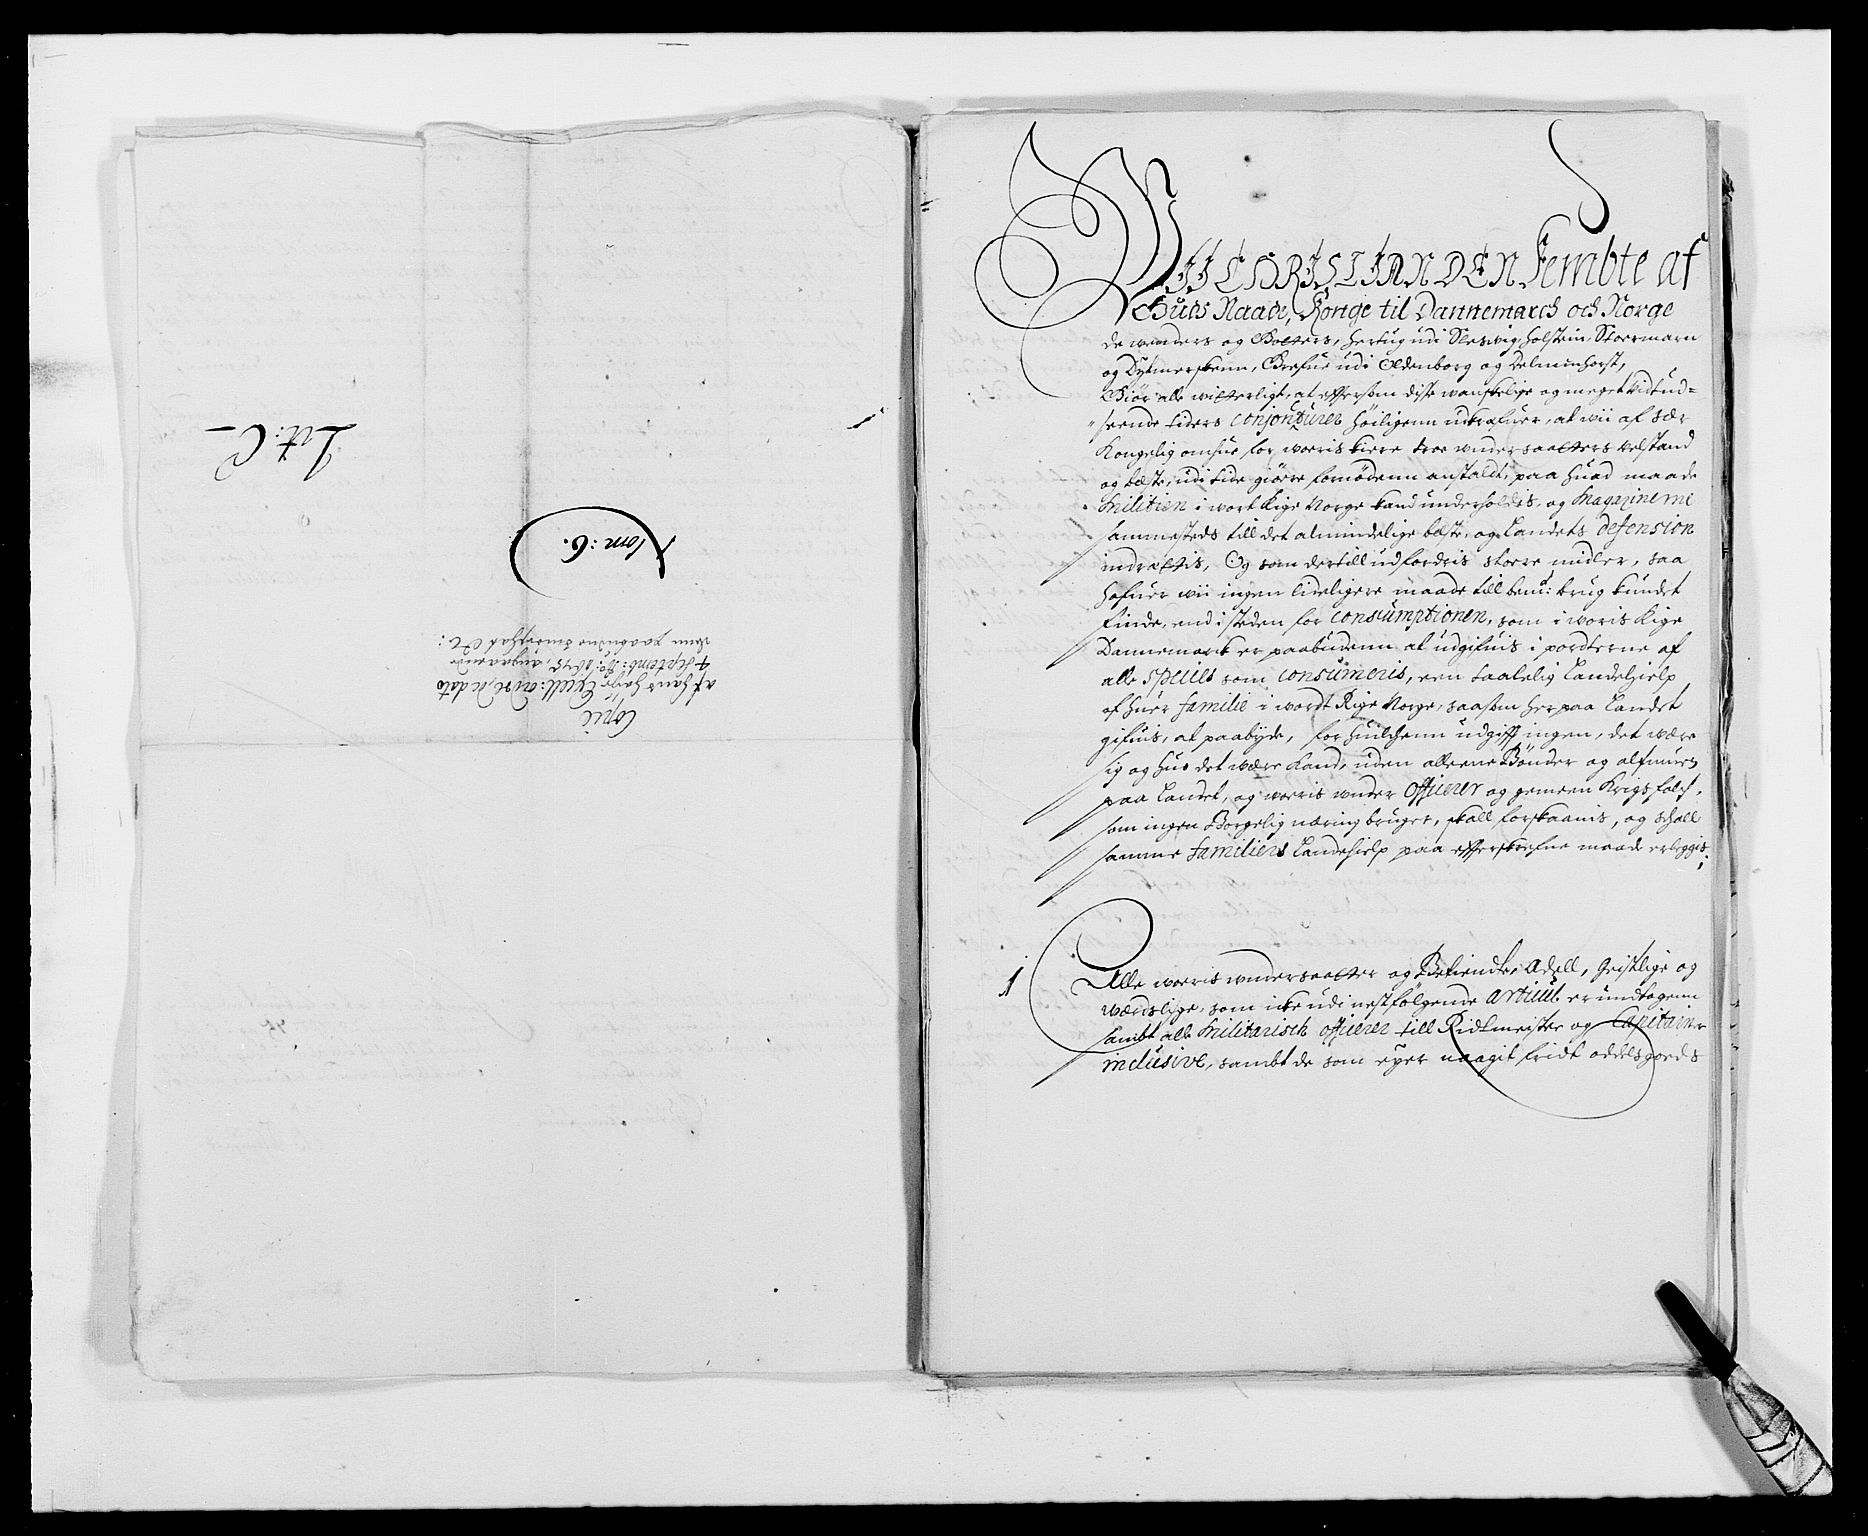 Lit: C
Nom: 6.
Copie
af hans høye Excell: ordre de dato
4 Septemb: Ao: 1675, angaaende
dem paabudne
WII CHRISTIAN DEN Fembte af
Guds Naade, Konge til Dannemarck och Norge
de Wenders og Gotters, Hertug udi Slesvig, Holstein, Stoermarn
og Dytmersken, Grefue udi Oldenborg og Delmenhorst,
Giør alle witterligt, at efftersom disse wanskelige og meget vidtud-
seende tiders conjoncturer høiligenn udkræfuer, at wii af sær
Kongelig omhue for woeris kiere troe undersaatters velstand
og bæste, udi tide giøre fornødenn anstaldt, paa huad maade
Militien i wort Rige Norge kand underholdis, og Magazinerne
sammesteds till det almindelige bæste, og Landets defension
indrættis, Og som dertill udfordris større midler, saa
hafuer wii ingen lideligere maade till bemt: brug kundet
finde, end i steden for Consumptionen, som i woris Rige
Dannemarck er paabudenn at udgifuis i porterne af
alle Species som consumeris, een taalelig Landehielp
af huer familie i wordt Rige Norge, saasom her paa Landet
gifuis, at paabyde, for huilchenn udgifft ingen, det være
sig og huo det være kand, uden alleene Bønder og almuen
paa Landet, og woeris under Officerer og gemeen Krigsfolch,
som ingen Borgelig næring bruger, skall forskaanis, og schall
samme familiers Landehielp paa efterskrefne maade erleggis:
1 Alle woeris undersaatter og Betiendte, Adell, Geistlige og
værdslige, som icke udi nestfølgende Articul er undtagenn
sambt alle Militarisch officerer till Ridtmeister og Capitain
inclusive, sambt de som eyer noogit fridt oddelsgoeds